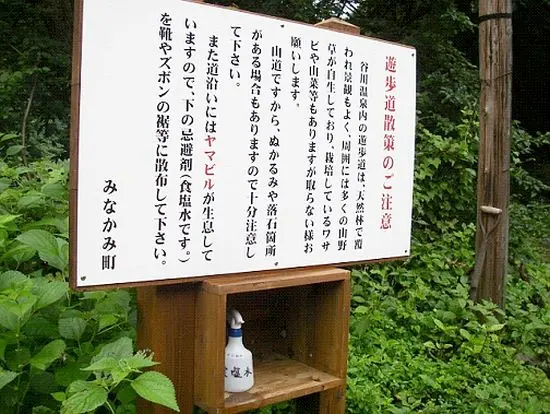 遊歩道散策のご注意
谷川温泉内の遊歩道は、天然林で覆
われ景観もよく、周囲には多くの山野
草が自生しており、栽培しているワサ
ビや山菜等もありますが取らない様お
願いします。
山道ですから、ぬかるみや落石箇所
がある場合もありますので十分注意し
て下さい。
また道沿いにはヤマビルが生息して
いますので、下の忌避剤(食塩水です。)
を靴やズボンの裾等に散布して下さい。
みなかみ町
塩水